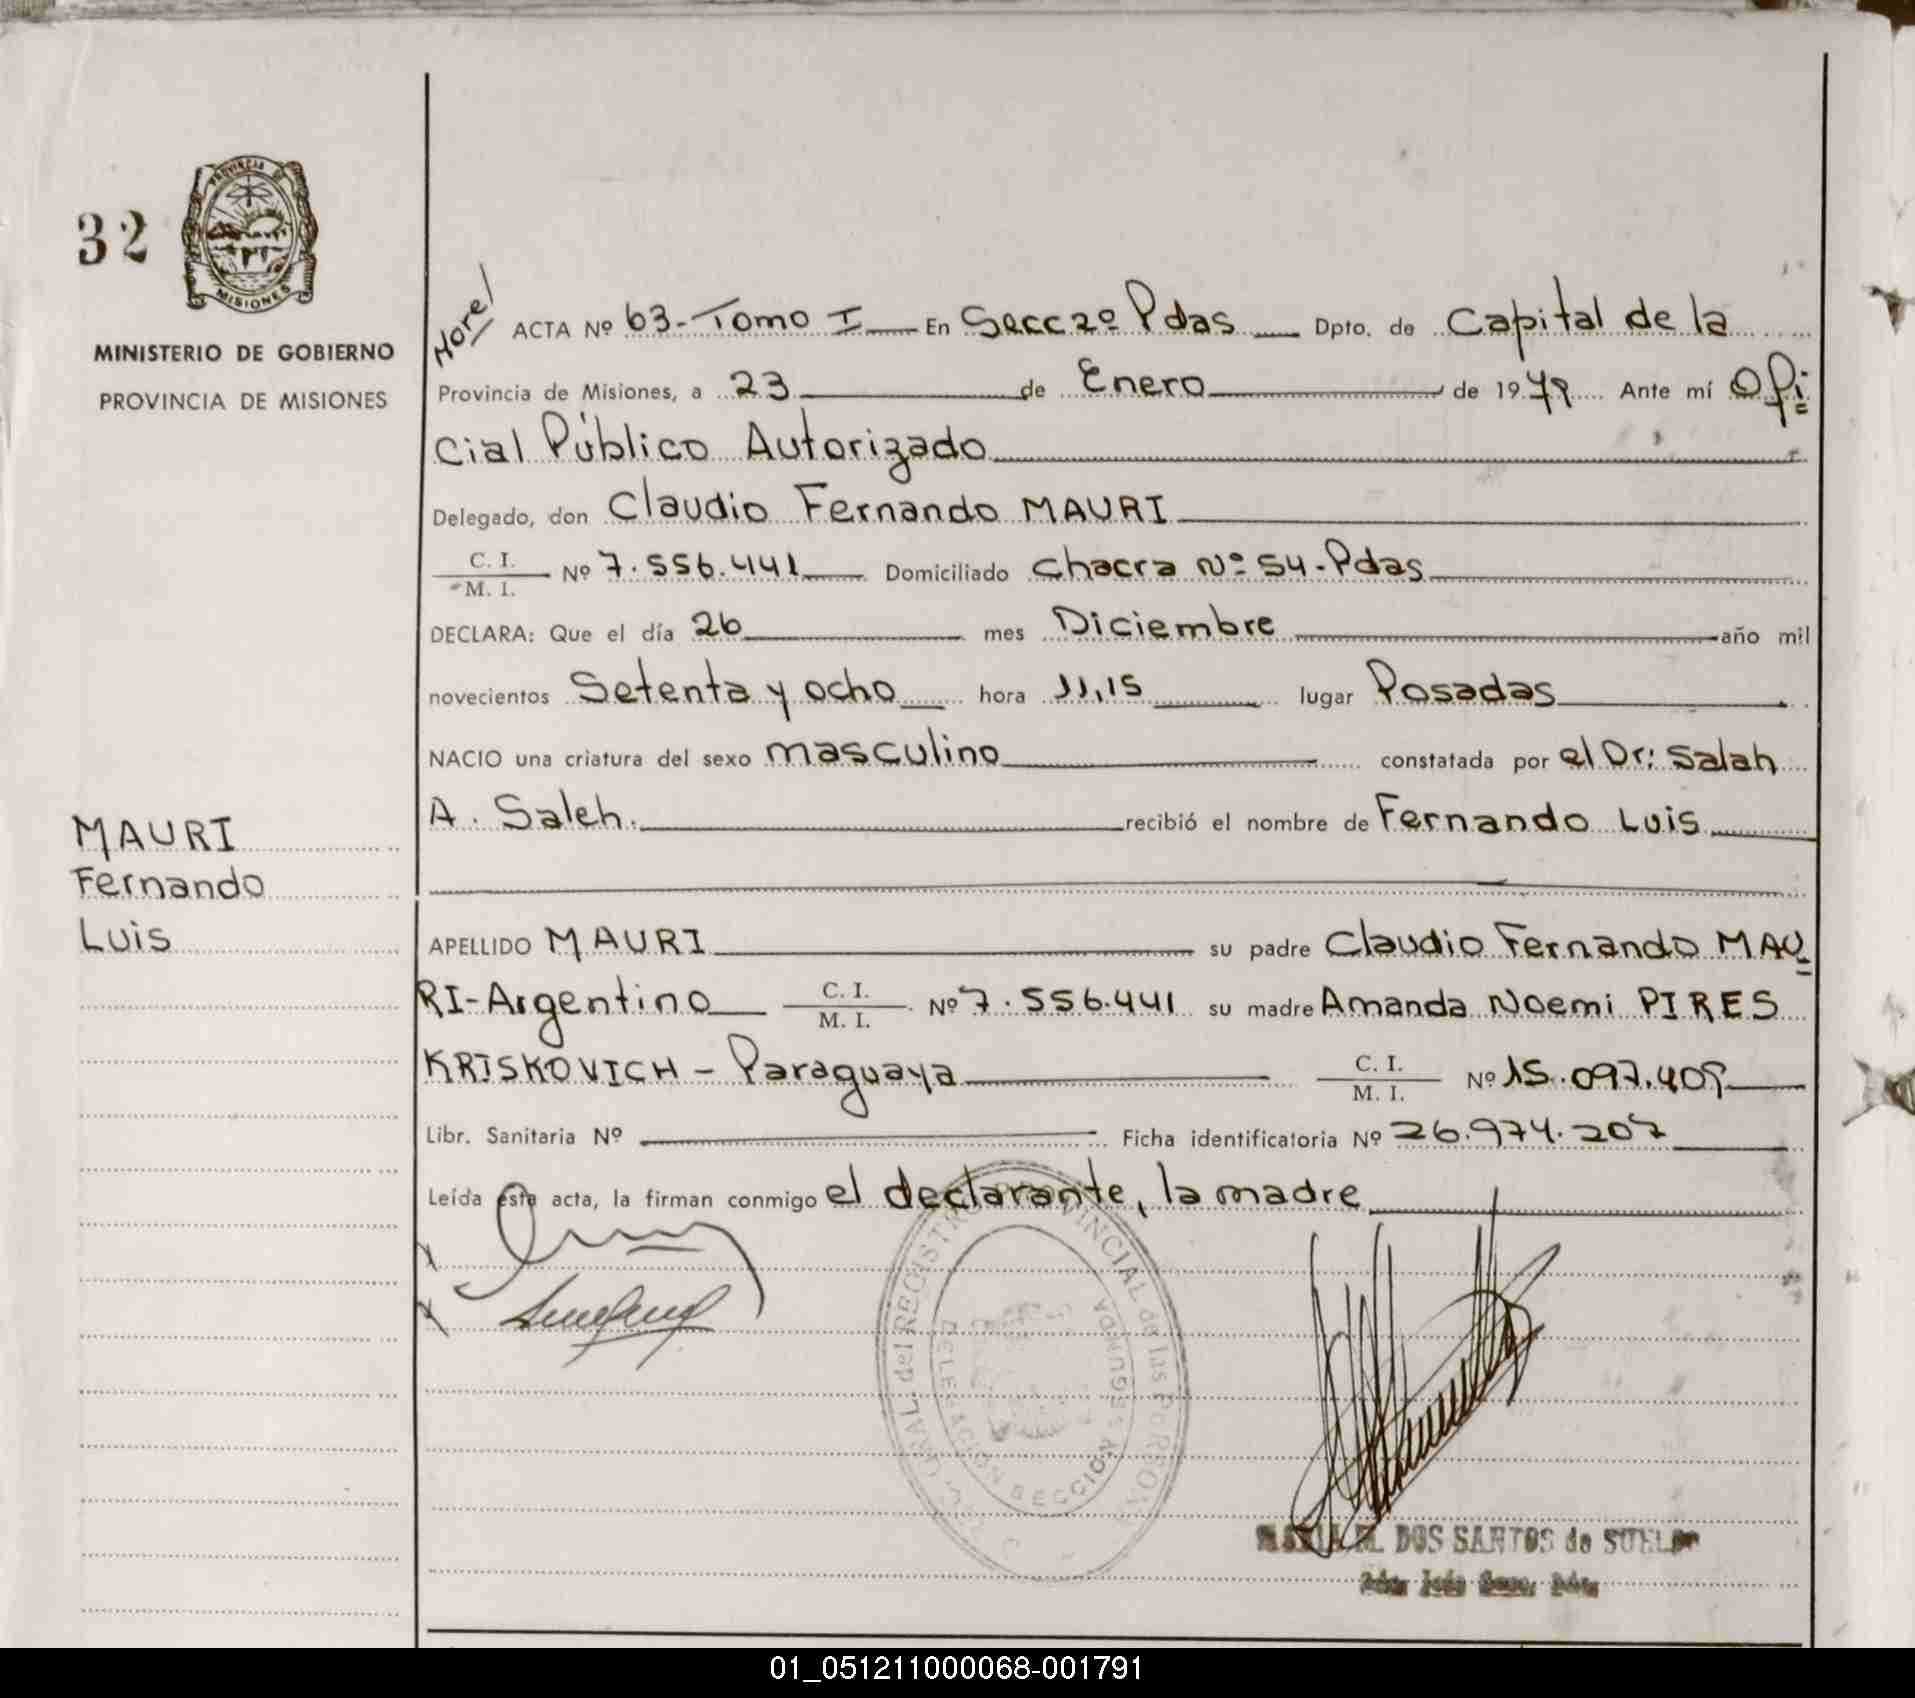 32
PROVINCIA DE
MISIONES
MINISTERIO DE GOBIERNO
PROVINCIA DE MISIONES
MAURI
Fernando
Luis
ACTA Nº 63-Tomo I En Secc 2º Pdas Dpto. de Capital de la
Provincia de Misiones, a 23 de Enero de 1979 Ante mí Ofi=
cial Público Autorizado
Delegado, don Claudio Fernando MAURI
C. I. / M. I. Nº 7.556.441 Domiciliado chacra Nº 54-Pdas
DECLARA: Que el día 26 mes Diciembre año mil
novecientos Setenta y ocho hora 11,15 lugar Posadas
NACIO una criatura del sexo masculino constatada por el Dr: Salah
A. Saleh. recibió el nombre de Fernando Luis
APELLIDO MAURI su padre Claudio Fernando MAU=
RI-Argentino C. I. / M. I. Nº 7.556.441 su madre Amanda Noemi PIRES
KRISKOVICH - Paraguaya C. I. / M. I. Nº 15.097.409
Libr. Sanitaria Nº Ficha identificatoria Nº 26.974.207
Leída esta acta, la firman conmigo el declarante, la madre
del REGISTRO PROVINCIAL de las PERSONAS
DELEGACION SECCION SEGUNDA
DOS SANTOS de
01_051211000068-001791